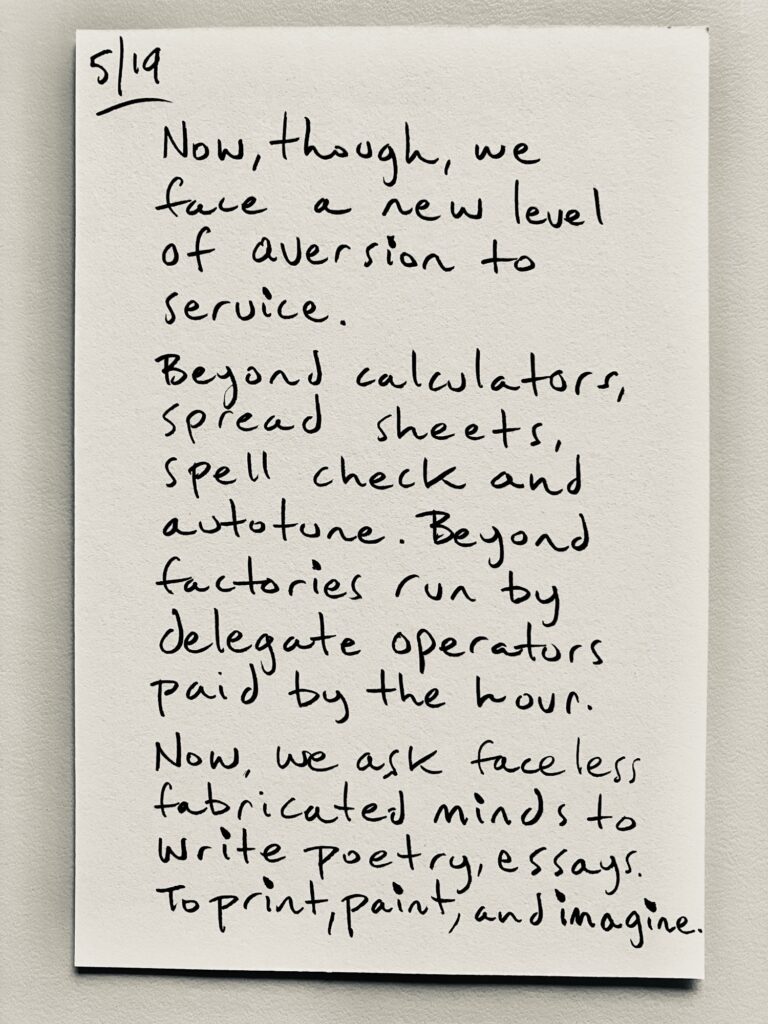 5/19
Now, though, we
face a new level
of aversion to
service.
Beyond calculators,
spread sheets,
spell check and
autotune. Beyond
factories run by
delegate operators
paid by the hour.
Now, we ask faceless
fabricated minds to
write poetry, essays.
To print, paint, and imagine.